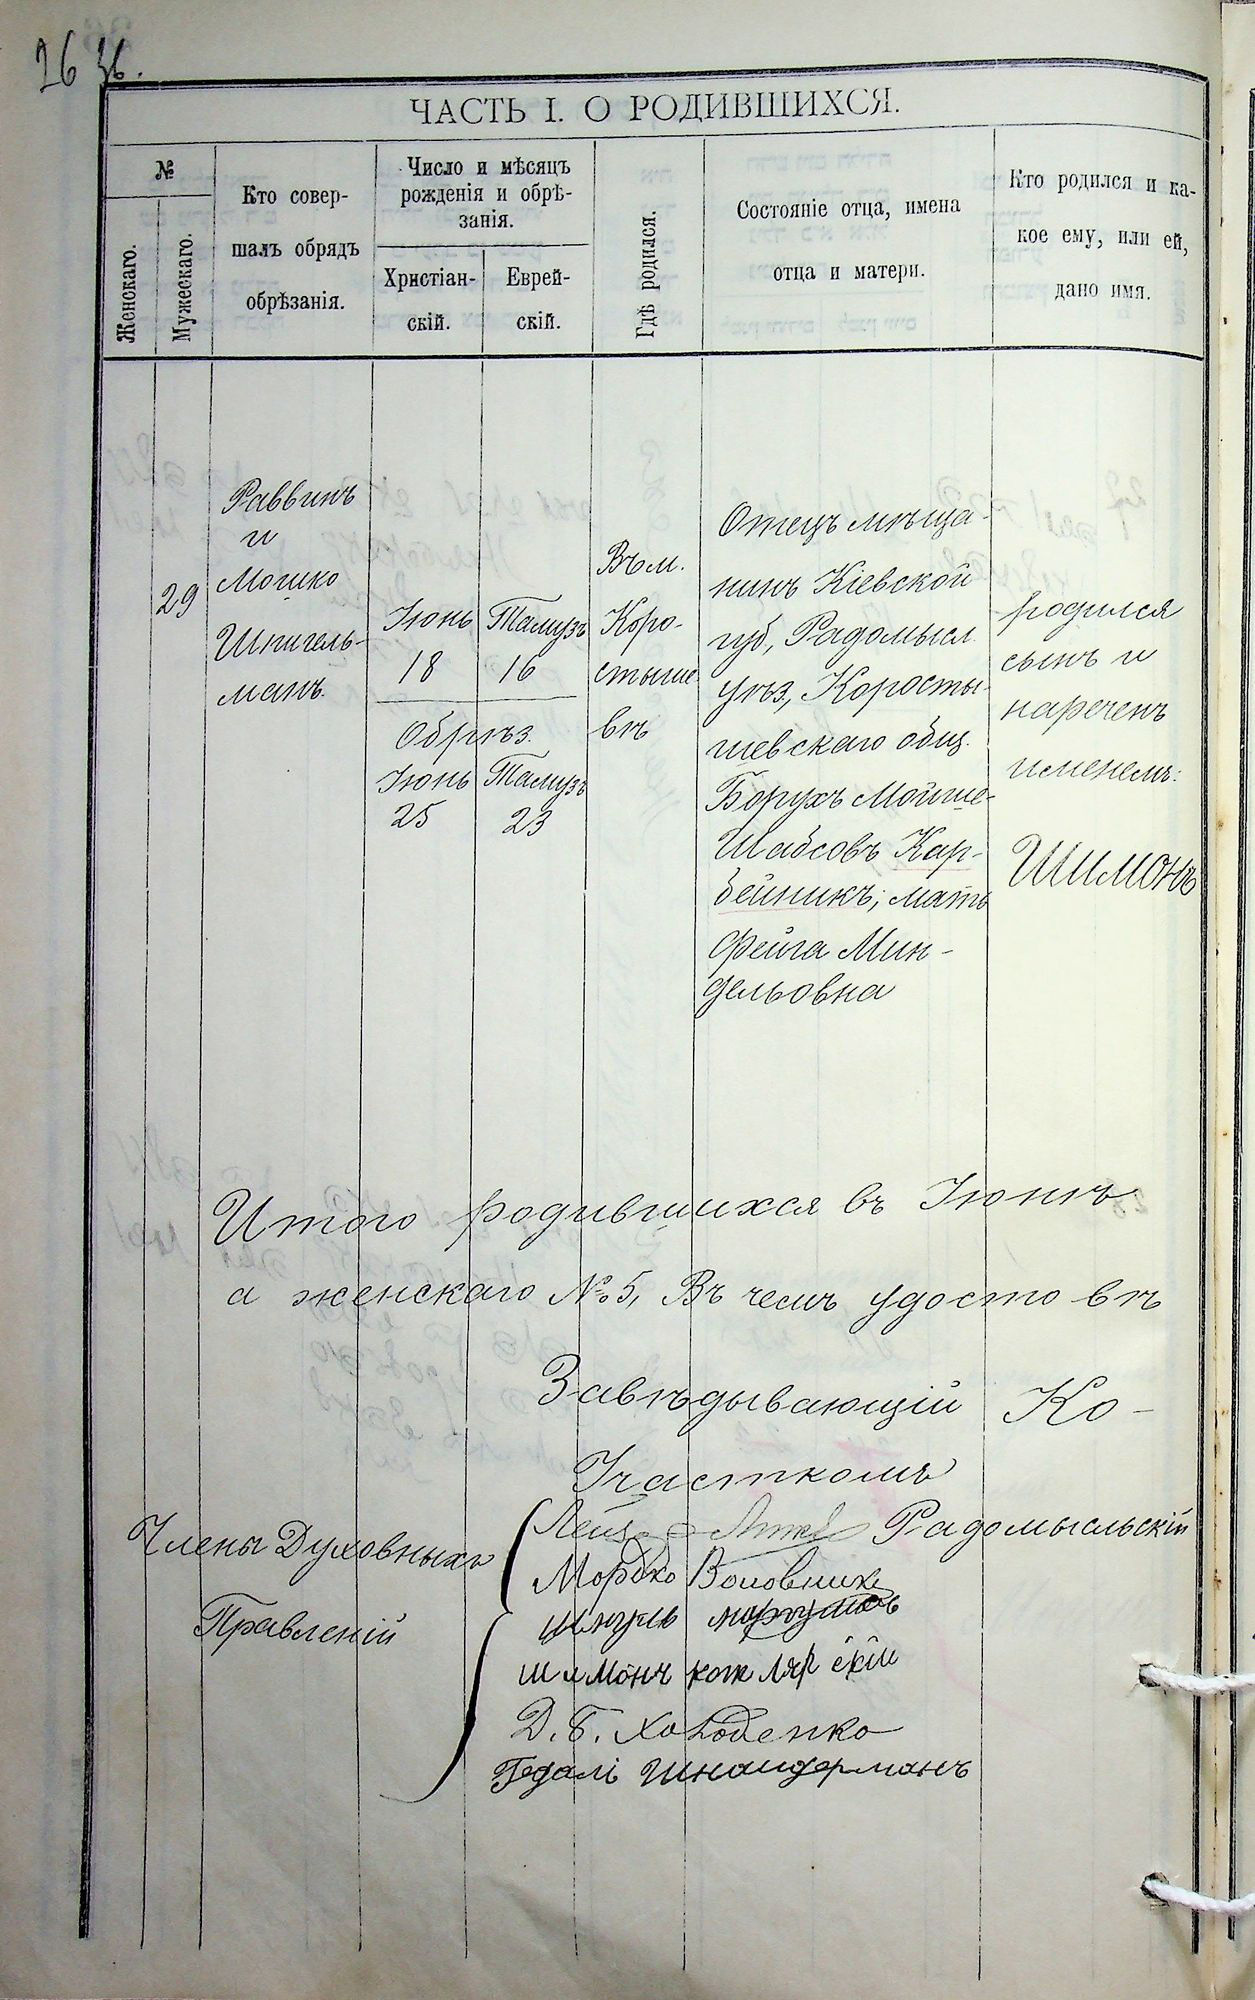 26 36.
ЧАСТЬ I. О РОДИВШИХСЯ.
№
Женскаго.
Мужескаго.
Кто совер-
шалъ обрядъ
обрѣзанія.
Число и мѣсяцъ
рожденія и обрѣ-
занія.
Христіан-
скій.
Еврей-
скій.
Гдѣ родился.
Состояніе отца, имена
отца и матери.
Кто родился и ка-
кое ему, или ей,
дано имя.
29
Раввинъ
и
Мошко
Шпигель-
манъ.
Іюнь
18
Обрѣз.
Іюнь
25
Тамузъ
16
Тамузъ
23
Въ м.
Коро-
стыше-
вѣ
Отецъ мѣща-
нинъ Кіевской
губ, Радомысл.
уѣз, Коросты-
шевскаго общ.
Борухъ Мойше-
Шабсовъ Кар-
бейникъ; мать
Фейга Мин-
дельовна
родился
сынъ и
нареченъ
именемъ:
Шимонъ
Итого родившихся въ Іюнѣ
а женскаго № 5, Въ чемъ удосто вѣ
Завѣдывающій Ко-
Участкомъ
Радомысльскій
Члены Духовныхъ
Правленій
Мордко Воловникъ
Шмуль
Шимонъ котлярскій
Д. Б. Холоденко
Гедалі Шнайдерманъ